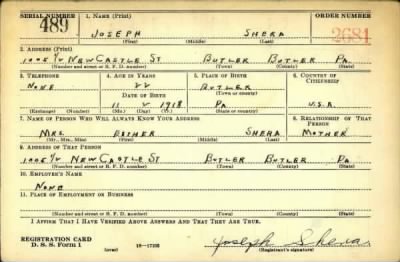 SERIAL NUMBER 1. NAME (Print) ORDER NUMBER
489 JOSEPH SHERA 2684
(First) (Middle) (Last)
2. ADDRESS (Print)
1005 1/2 NEW CASTLE ST BUTLER BUTLER PA
(Number and street or R. F. D. number) (Town) (County) (State)
3. TELEPHONE 4. AGE IN YEARS 5. PLACE OF BIRTH 6. COUNTRY OF CITIZENSHIP
NONE 22 BUTLER
DATE OF BIRTH (Town or county)
11 2 1918 PA U.S.A.
(Exchange) (Number) (Mo.) (Day) (Yr.) (State or country)
7. NAME OF PERSON WHO WILL ALWAYS KNOW YOUR ADDRESS 8. RELATIONSHIP OF THAT PERSON
MRS. ESTHER SHERA MOTHER
(Mr., Mrs., Miss) (First) (Middle) (Last)
9. ADDRESS OF THAT PERSON
1005 1/2 NEW CASTLE ST BUTLER BUTLER PA
(Number and street or R. F. D. number) (Town) (County) (State)
10. EMPLOYER'S NAME
NONE
11. PLACE OF EMPLOYMENT OR BUSINESS
(Number and street or R. F. D. number) (Town) (County) (State)
I AFFIRM THAT I HAVE VERIFIED ABOVE ANSWERS AND THAT THEY ARE TRUE.
REGISTRATION CARD
D. S. S. FORM 1 (over) 16—17105 Joseph Shera
(Registrant's signature)